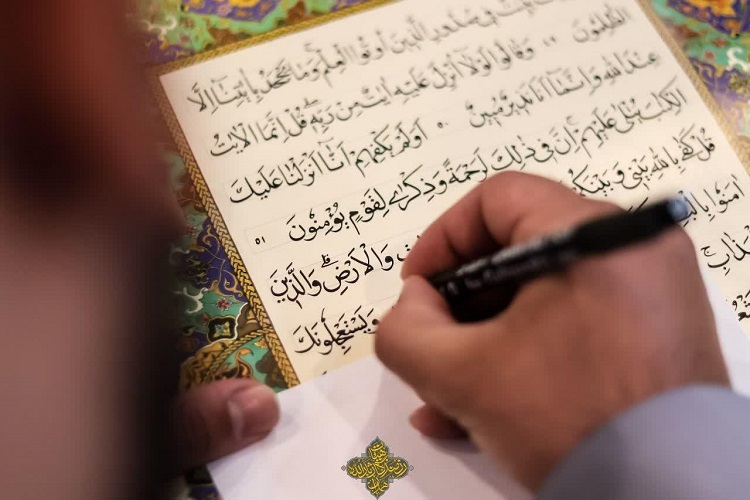 صُدُورِ الَّذينَ اُوتُوا الْعِلْمَ وَمَا يَجْحَدُ بِاٰيٰتِنَا اِلَّا
الظّٰلِمُونَ ٤٩ وَقَالُوا لَوْلَا اُنْزِلَ عَلَيْهِ اٰيٰتٌ مِنْ رَبِّهِ قُلْ اِنَّمَا الْاٰيٰتُ
عِنْدَ اللّٰهِ وَاِنَّمَا اَنَا نَذيرٌ مُبينٌ ٥٠ اَوَلَمْ يَكْفِهِمْ اَنَّا اَنْزَلْنَا عَلَيْكَ
الْكِتٰبَ يُتْلٰى عَلَيْهِمْ اِنَّ في ذٰلِكَ لَرَحْمَةً وَذِكْرٰى لِقَوْمٍ يُؤْمِنُونَ ٥١
قُلْ كَفٰى بِاللّٰهِ بَيْني وَبَيْنَكُمْ وَالْاَرْضِ وَالَّذينَ
اٰمَنُوا وَيَسْتَعْجِلُونَكَ